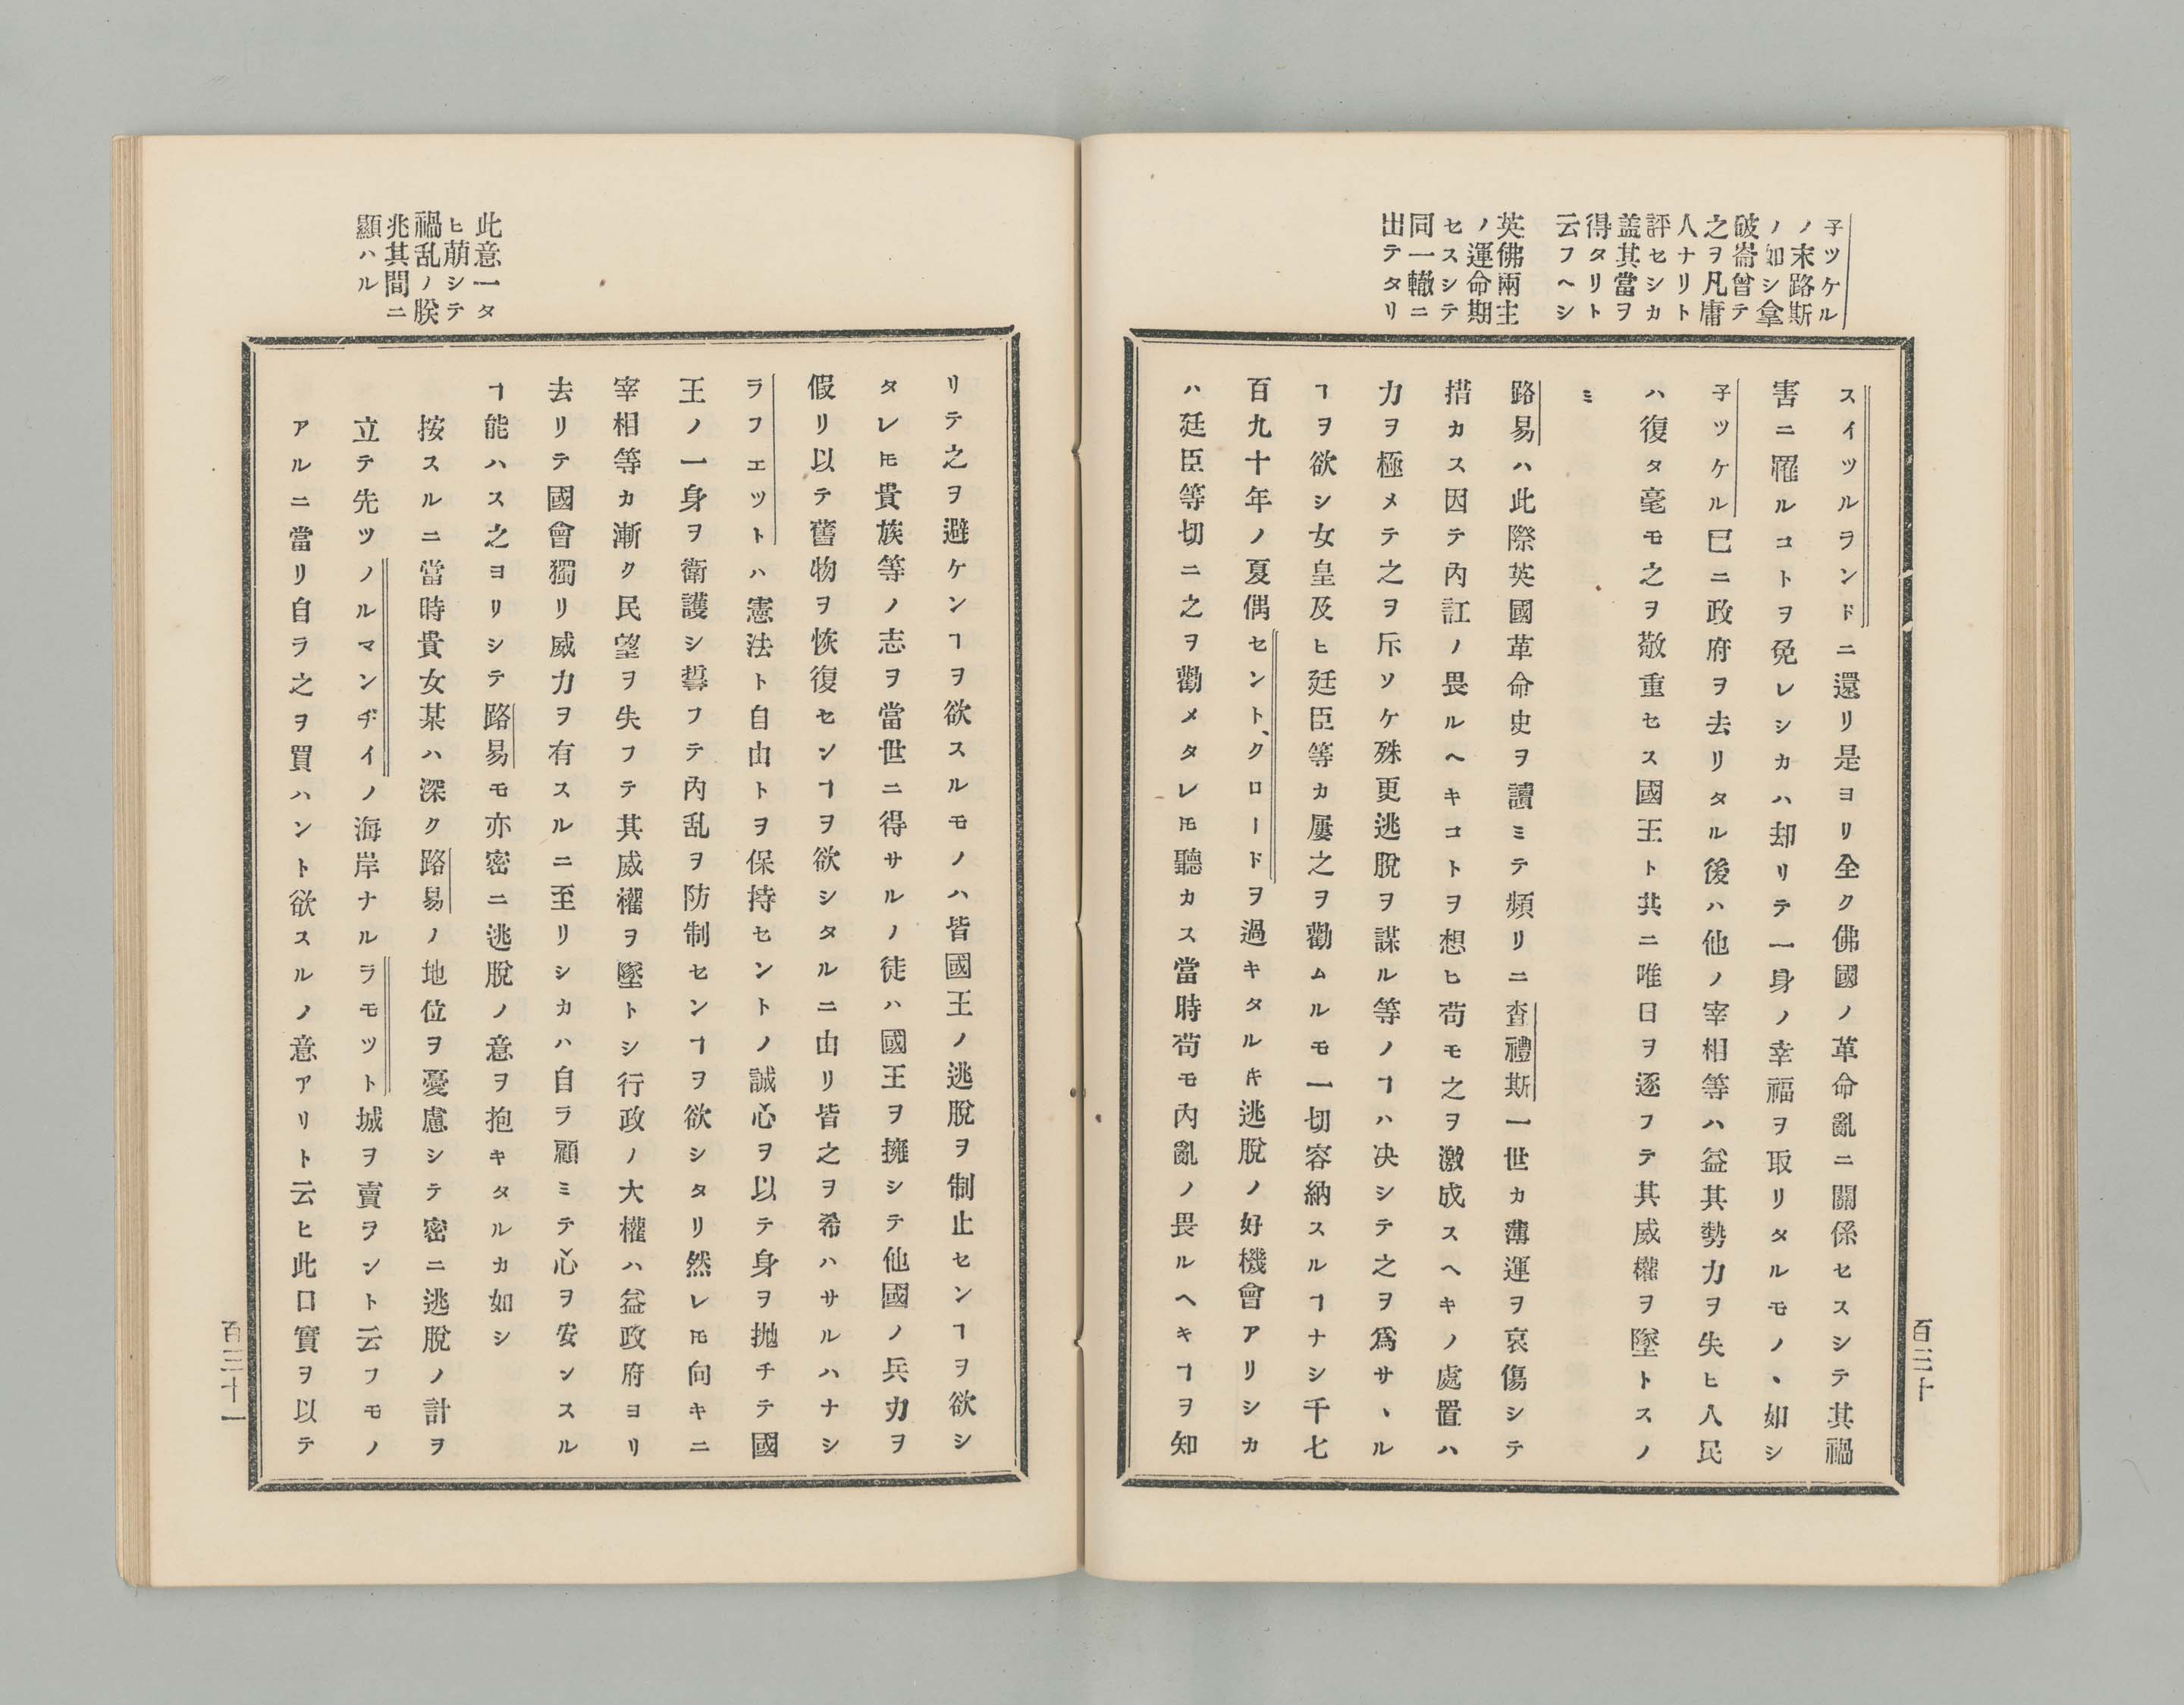 子ツケル
ノ末路斯
ノ如シ拿
破崙曾テ
之ヲ凡庸
人ナリト
評セシカ
盖其當ヲ
得タリト
云フヘシ
英佛兩主
ノ運命期
セスシテ
同一轍ニ
出テタリ
スイツルランドニ還リ是ヨリ全ク佛國ノ革命亂ニ關係セスシテ其禍
害ニ罹ルコトヲ免レシカハ却リテ一身ノ幸福ヲ取リタルモノヽ如シ
子ツケル巳ニ政府ヲ去リタル後ハ他ノ宰相等ハ益其勢力ヲ失ヒ人民
ハ復タ毫モ之ヲ敬重セス國王ト共ニ唯日ヲ逐フテ其威權ヲ墜トスノ
ミ
路易ハ此際英國革命史ヲ讀ミテ頻リニ査禮斯一世カ薄運ヲ哀傷シテ
措カス因テ內訌ノ畏ルヘキコトヲ想ヒ苟モ之ヲ激成スヘキノ處置ハ
力ヲ極メテ之ヲ斥ソケ殊更逃脫ヲ謀ル等ノヿハ决シテ之ヲ爲サヽル
ヿヲ欲シ女皇及ヒ廷臣等カ屢之ヲ勸ムルモ一切容納スルヿナシ千七
百九十年ノ夏偶セント、クロードヲ過キタルキ逃脫ノ好機會アリシカ
ハ廷臣等切ニ之ヲ勸メタレ𪜈聽カス當時苟モ內亂ノ畏ルヘキヿヲ知
百三十
此意一タ
ヒ萠シテ
禍乱ノ朕
兆其間ニ
顯ハル
リテ之ヲ避ケンヿヲ欲スルモノハ皆國王ノ逃脫ヲ制止センヿヲ欲シ
タレ𪜈貴族等ノ志ヲ當世ニ得サルノ徒ハ國王ヲ擁シテ他國ノ兵力ヲ
假リ以テ舊物ヲ恢復センヿヲ欲シタルニ由リ皆之ヲ希ハサルハナシ
ラフエツトハ憲法ト自由トヲ保持セントノ誠心ヲ以テ身ヲ抛チテ國
王ノ一身ヲ衛護シ誓フテ內乱ヲ防制センヿヲ欲シタリ然レ𪜈向キニ
宰相等カ漸ク民望ヲ失フテ其威權ヲ墜トシ行政ノ大權ハ益政府ヨリ
去リテ國會獨リ威力ヲ有スルニ至リシカハ自ラ顧ミテ心ヲ安ンスル
ヿ能ハス之ヨリシテ路易モ亦密ニ逃脫ノ意ヲ抱キタルカ如シ
按スルニ當時貴女某ハ深ク路易ノ地位ヲ憂慮シテ密ニ逃脫ノ計ヲ
立テ先ツノルマンヂイノ海岸ナルラモツト城ヲ賣ヲント云フモノ
アルニ當リ自ラ之ヲ買ハント欲スルノ意アリト云ヒ此口實ヲ以テ
百三十一